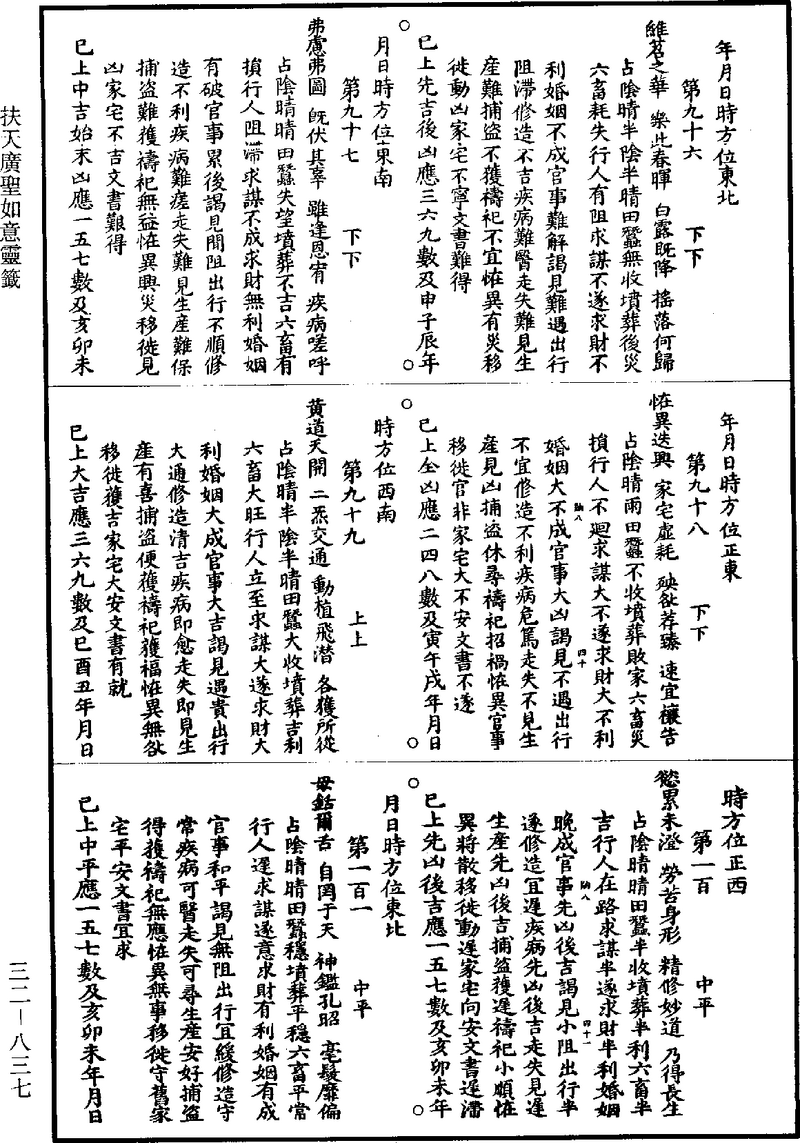 年月日時方位東北
第九十六　下下
維苕之華　樂此春暉　白露既降　搖落何歸
占陰晴半陰半晴田蠶無收墳葬後災
六畜耗失行人有阻求謀不遂求財不
利婚姻不成官事難解謁見難遇出行
阻滯修造不吉疾病難醫走失難見生
產難捕盜不獲禱祀不宜恠異有災移
徙動凶家宅不寧文書難得
已上先吉後凶應三六九數及申子辰年
月日時方位東南
第九十七　下下
弗慮弗圖　既伏其辜　雖逢恩宥　疾病嗟呼
占陰晴晴田蠶失望墳葬不吉六畜有
損行人阻滯求謀不成求財無利婚姻
有破官事累後謁見間阻出行不順修
造不利疾病難瘥走失難見生產難保
捕盜難獲禱祀無益恠異興災移徙見
凶家宅不吉文書難得
已上中吉始末凶應一五七數及亥卯未
年月日時方位正東
第九十八　下下
恠異迭興　家宅虛耗　殃咎荐臻　速宜禳告
占陰晴雨田蠶不收墳葬敗家六畜災
損行人不廻求謀大不遂求財大不利
婚姻大不成官事大凶謁見不遇出行
不宜修造不利疾病危篤走失不見生
產見凶捕盜休尋禱祀招禍恠異官事
移徙官非家宅大不安文書不遂
已上全凶應二四八數及寅午戌年月日
時方位西南
第九十九　上上
黃道天開　二炁交通　動植飛潛　各獲所從
占陰晴半陰半晴田蠶大收墳葬吉利
六畜大旺行人立至求謀大遂求財大
利婚姻大成官事大吉謁見遇貴出行
大通修造清吉疾病即愈走失即見生
產有喜捕盜便獲禱祀獲福恠異無咎
移徙獲吉家宅大安文書有就
已上大吉應三六九數及巳酉丑年月日
時方位正西
第一百　中平
慾累未澄　勞苦身形　精修妙道　乃得長生
占陰晴晴田蠶半收墳葬半利六畜半
吉行人在路求謀半遂求財半利婚姻
晚成官事先凶後吉謁見小阻出行半
遂修造宜遲疾病先凶後吉走失見遲
生產先凶後吉捕盜獲遲禱祀小順恠
異將散移徙動遲家宅向安文書遲滯
已上先凶後吉應一五七數及亥卯未年
月日時方位東北
第一百一　中平
毋銛爾舌　自罔于天　神鑑孔昭　毫髮靡偏
占陰晴晴田蠶穩墳葬平穩六畜平常
行人遲求謀遂意求財有利婚姻有成
官事和平謁見無阻出行宜緩修造守
常疾病可醫走失可尋生產安好捕盜
得獲禱祀無應恠異無事移徙守舊家
宅平安文書宜求
已上中平應一五七數及亥卯未年月日
扶天廣聖如意靈籤
三二—八三七